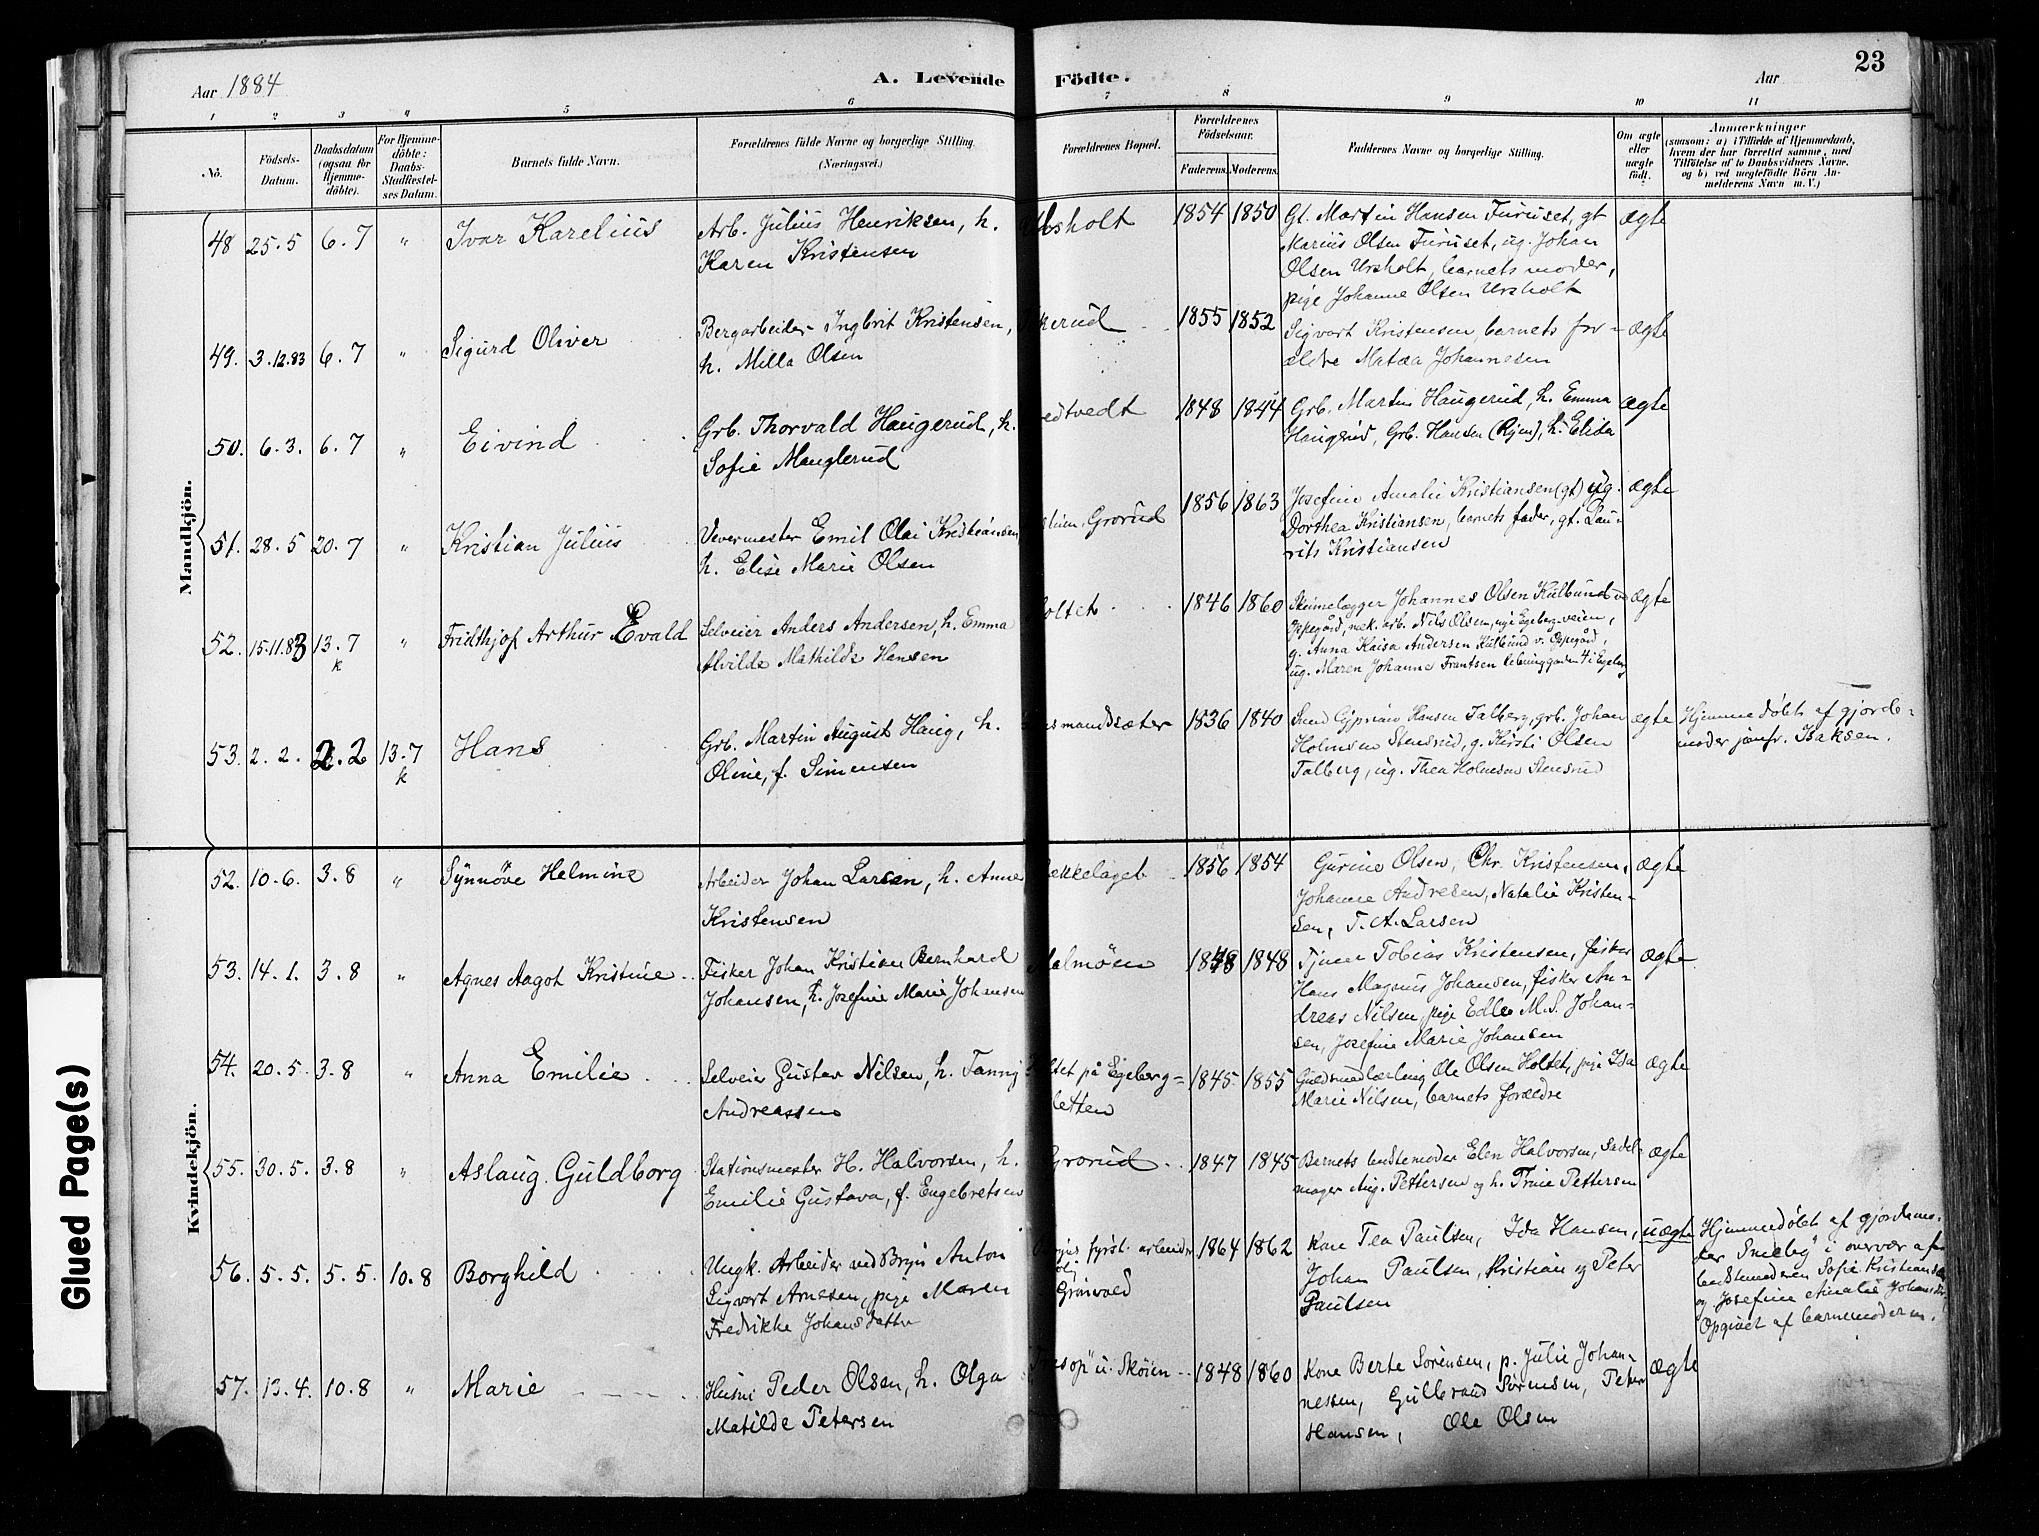 Aar 1884
A. Levende Födte.
Aar
23
1 2 3 4 5 6 7 8 9 10 11
No.
Födsels-
Datum.
Daabsdatum
(ogsaa for
Hjemme-
döbte).
For Hjemme-
döbte:
Daabs-
Stadfæstel-
ses Datum.
Barnets fulde Navn.
Forældrenes fulde Navne og borgerlige Stilling.
(Næringsvei.)
Forældrenes Bopæl.
Forældrenes
Födselsaar.
Faderens. Moderens.
Faddernes Navne og borgerlige Stilling.
Om ægte
eller
uægte
födt.
Anmærkninger
(saasom: a) i Tilfælde af Hjemmedaab,
hvem der har forrettet samme, med
Tilföielse af to Daabsvidners Navne,
og b) ved uægtefödte Börn An-
melderens Navn m. V.)
Mandkjön.
48 25.5 6.7 " Ivar Karelius
Arb. Julius Henriksen, h.
Karen Kristensen
1854 1850
Gt. Martin Hansen Furuset, gt
Marius Olsen Furuset, ug. Johan
Olsen Ursholt, barnets moder,
pige Johanne Olsen Ursholt
ægte
49. 3.12.83 6.7 " Sigurd Oliver
Bergarbeider Ingbrit Kristensen,
h. Milla Olsen
1855 1852
Sigvart Kristensen, barnets for-
ældre Johannesen
ægte
50. 6.3. 6.7 " Eivind
Grb. Thorvald Haugerud, h.
Sofie Manglerud
edtvedt
1848 1844
Grb. Martin Haugerud, h. Emma
Haugerud, Grb. Hansen (Ryen), h. Elida
ægte
51. 28.5 20.7 " Kristian Julius
Vevermester Emil Olai Kristiansen
h. Elise Marie Olsen
Grorud
1856 1863
Josefine Amalie Kristiansen (gt) ug.
Dorthea Kristiansen, barnets fader, gt. Lau-
rits Kristiansen
ægte
52. 15.11.83 13.7 k " Fridthjof Arthur Evald
Selveier Anders Andersen, h. Emma
Alvilde Mathilde Hansen
oltet
1846 1860
Skinnelægger Johannes Olsen Kulbund v.
Oppegård, mek. arb. Nils Olsen, nye Egebergveien,
g. Anna Kaisa Andersen Kulbund v. Oppegård,
ug. Maren Johanne Frantsen
ægte
53. 2.2. 2.2 13.7 k Hans
Grb. Martin August Haug, h.
Oline, f. Simensen
smandssæter
1836 1840
Smed Cyprian Hansen Talberg, grb. Johan
Holmsen Stensrud, g. Kirsti Olsen
Talberg, ug. Thea Holmsen Stensrud
ægte
Hjemmedöbt af gjorde-
moder jomfr. Isaksen.
Kvindekjön.
52. 10.6. 3.8 " Synnöve Helmine
Arbeider Johan Larsen, h. Anne
Kristensen
ekkelaget
1856 1854
Gurine Olsen, Chr. Kristensen,
Johanne Andresen, Natalie Kristen-
sen, T. A. Larsen
ægte
53. 14.1. 3.8 " Agnes Aagot Kristine
Fisker Johan Kristian Bernhard
Johansen, h. Josefine Marie Johansen
Malmöen
1848 1848
Tjener Tobias Kristensen, fisker
Hans Magnus Johansen, fisker An-
dreas Nilsen, pige Edle M. S. Johan-
sen, Josefine Marie Johansen
ægte
54. 20.5. 3.8 " Anna Emilie
Selveier Gustav Nilsen, h. Fanny
Andreassen
ltet på Egeberg-
letten
1845. 1855
Guldsmedlærling Ole Olsen Holtet, pige Ida
Marie Nilsen, barnets forældre
ægte
55. 30.5. 3.8 " Aslaug Guldborg
Stationsmester H. Halvorsen, h.
Emilie Gustava, f. Engebretsen
Grorud
1847 1845
Barnets bedstemoder Elen Halvorsen, sadel-
mager Aug. Pettersen og h. Trine Pettersen
ægte
56. 5.5. 5.5. 10.8 Borghild
Ungk. Arbeider ved Bryn Anton
Sigvart Arnesen, pige Maren
Fredrikke Johansdatter
fyrst. arbeider
Grönvold
1864 1862
Kone Tea Paulsen, Ida Hansen,
Johan Paulsen, Kristian og Peter
Paulsen
uægte
Hjemmedöbt af gjordemo-
der Smeby i overvær af
bedstemoderen Sofie Kristiansen
og Josefine Amalie Johansen,
Opgivet af barnemoderen.
57. 13.4. 10.8 " Marie
Husm Peder Olsen, h. Olga
Matilde Petersen
u. Sköien
1848 1860
Kone Berte Sörensen, p. Julie Johan-
nessen, Gulbrand Sörensen, Peter
Hansen, Ole Olsen
ægte
Glued Page(s)